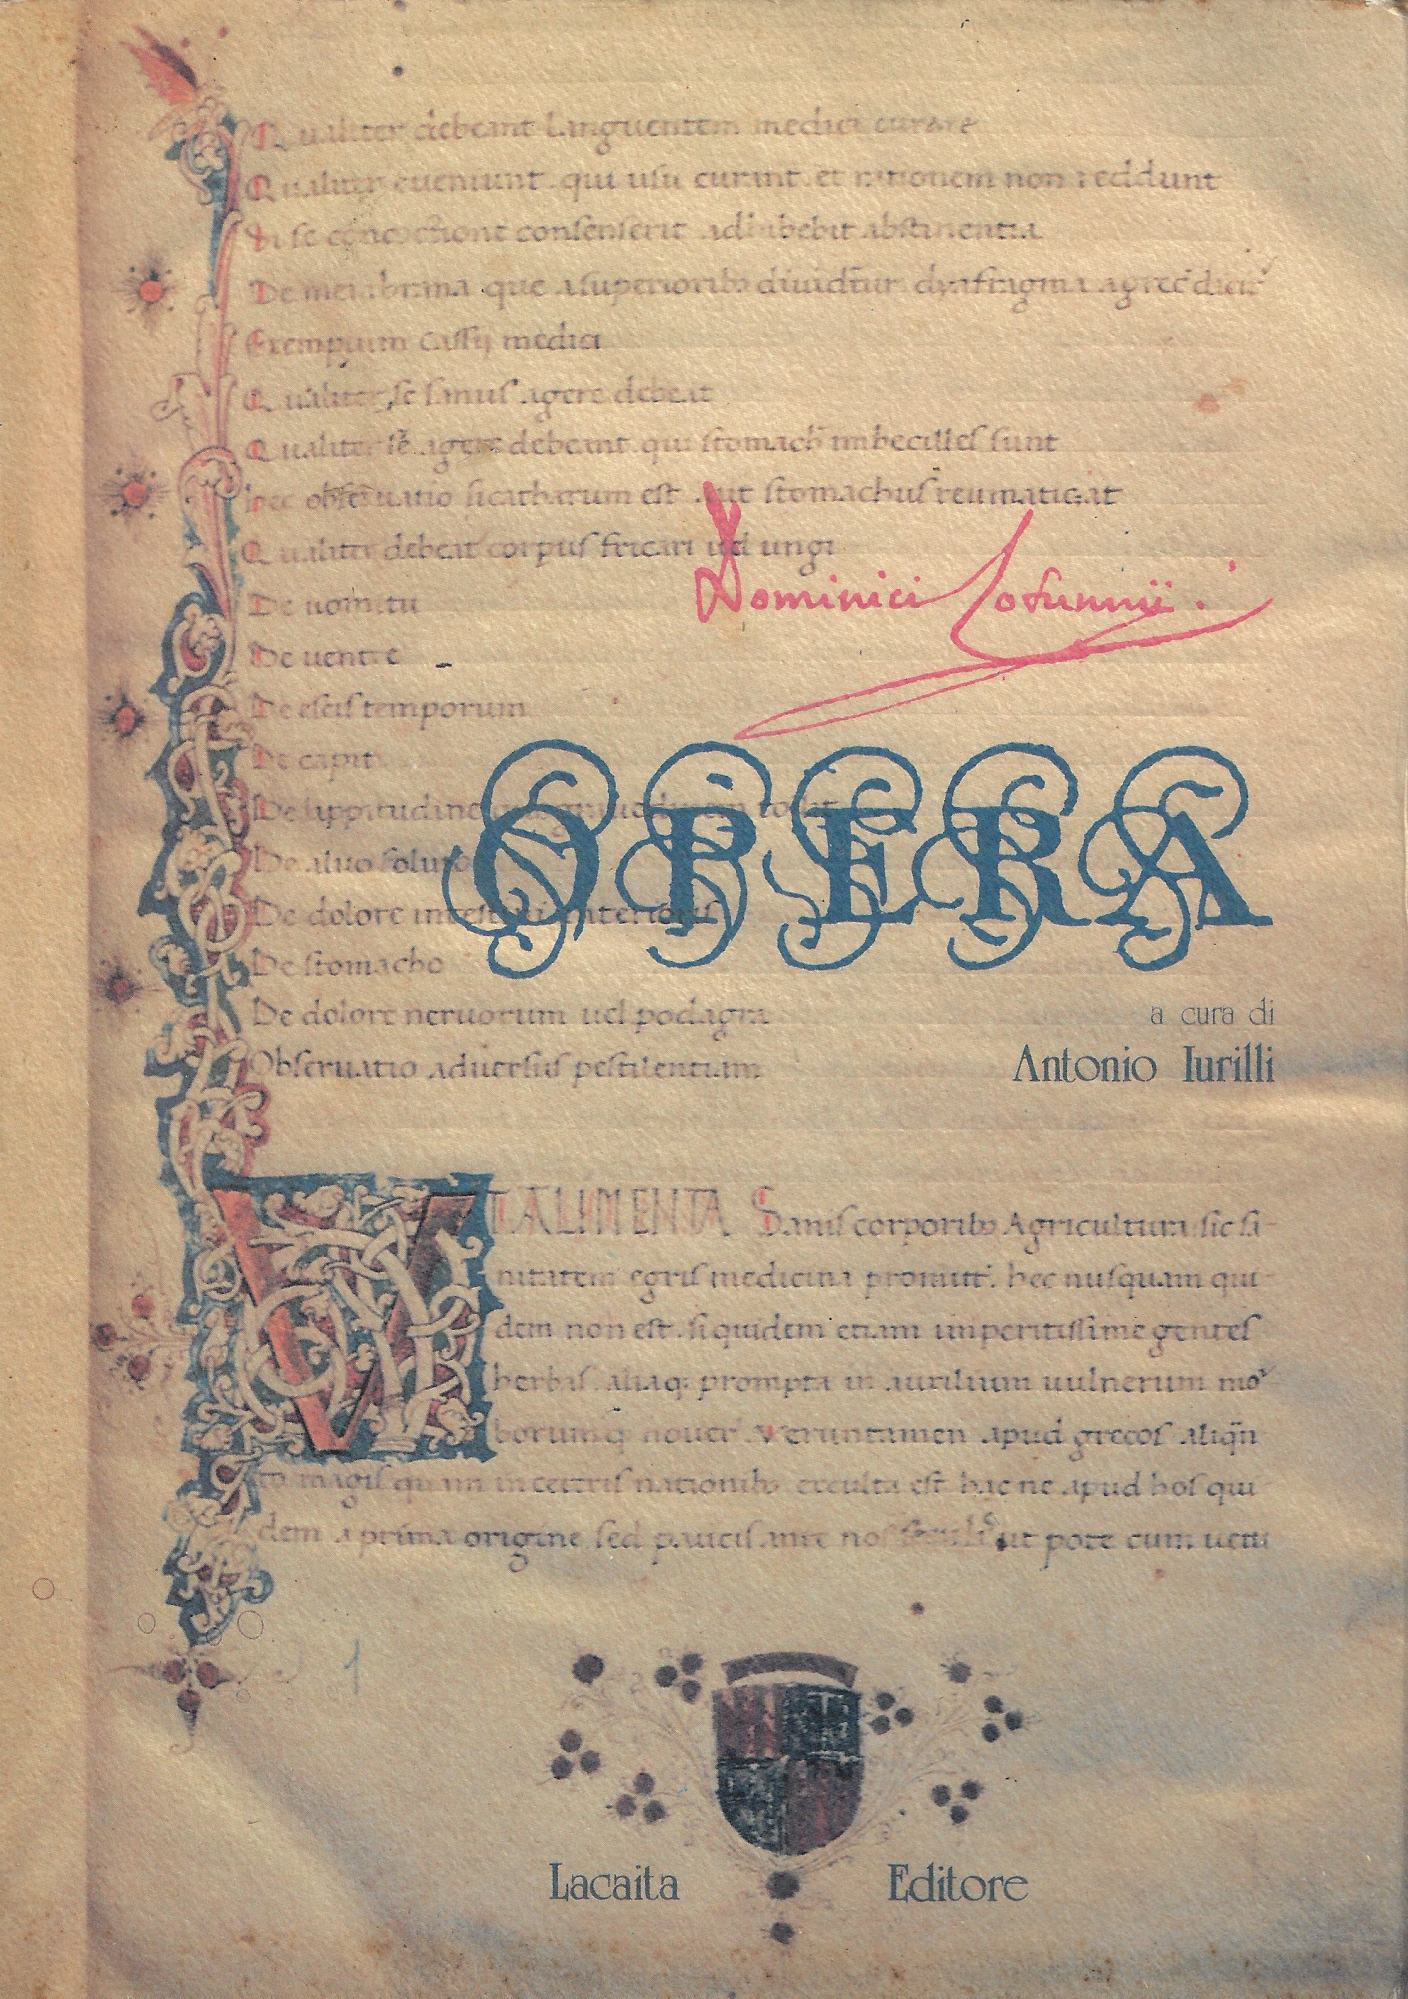 Qualiter debeant Languentem medici curare
Qualiter eueniunt qui usu curant et rationem non reddunt
Si se concoctioni consenserit adhibebit abstinentia
De membrana que asuperiorib diuiditur dyafragma a grec dicit
Exemplum Cassij medici
Qualiter se sanus agere debeat
Qualiter se agere debeant qui stomach imbecilles sunt
hec obseruatio sicatharum est aut stomachus reumatizat
Qualiter debeat corpus fricari uel ungi
Dominici Cotunnii.
De uomitu
De uentre
De escis temporum
De capit
De lippitudine
De aluo soluto
OPERA
De dolore intestini interioris
De stomacho
De dolore neruorum uel podagra
a cura di
Obseruatio aduersus pestilentiam
Antonio Iurilli
VT ALIMENTA Sanis corporib Agricultura sic sa-
nitatem egris medicina promitt. hec nusquam qui-
dem non est. siquidem etiam imperitissime gentes
herbas. aliaq; prompta in auxilium uulnerum mo
borumq nouer. Veruntamen apud grecos aliqn
to magis quam in ceteris nationib exculta est hac ne apud hos qui
dem a prima origine sed paucis ante nos ut pote cum uetu
1
Lacaita Editore